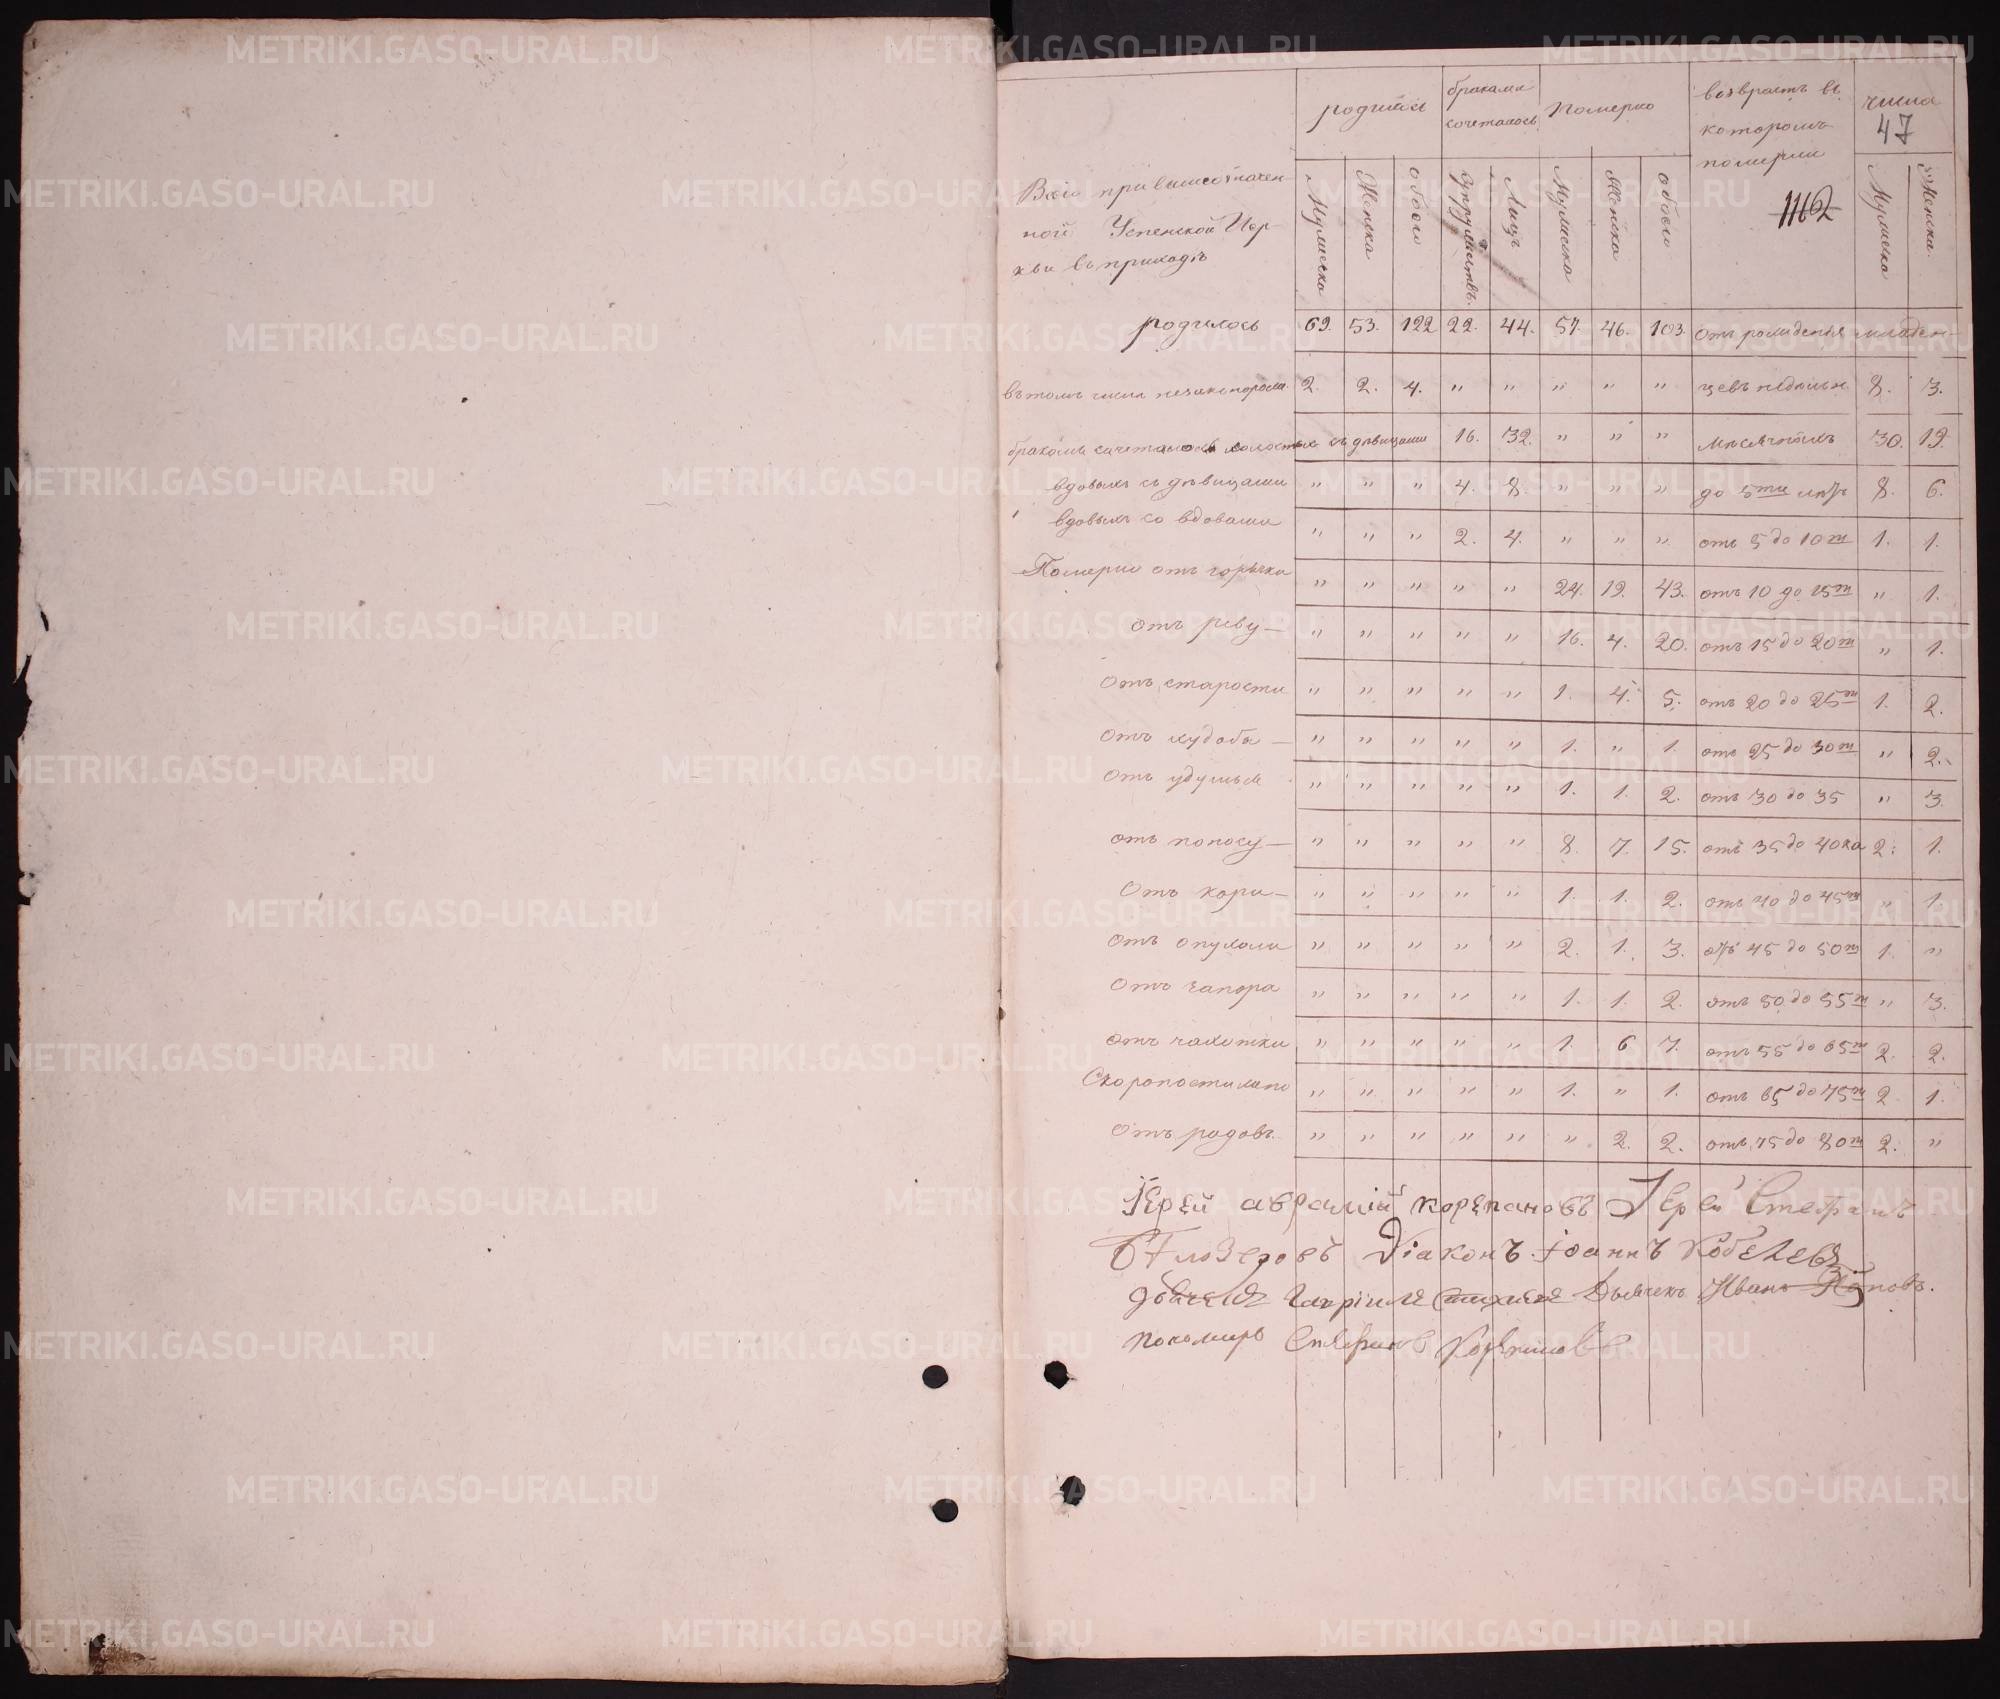 родилось
браками
сочеталось
Померло
возврастъ въ
которомъ
померли
числа
47
1162
Всего при вышеозначен-
ной Успенской Цер-
кви въ приходѣ
Мужеска Женска обоего Супружествъ Лицъ Мужеска Женска обоего Мужеска Женска
родилось 69. 53. 122 22. 44. 57. 46. 103 отъ рождения младен-
въ томъ числе незаконорож. 2. 2. 4. " " " " " цевъ недѣльн 8. 3.
бракомъ сочеталось холостых съ девицами 16. 32. " " " мѣсячныхъ 30. 19.
вдовыхъ съ девицами " " " 4. 8. " " " до 5ти летъ 8. 6.
вдовыхъ со вдовами " " " 2. 4. " " " отъ 5 до 10т 1. 1.
Померло отъ горячки " " " " " 24. 19. 43. отъ 10 до 15т " 1.
отъ реву — " " " " " 16. 4. 20. отъ 15 до 20т " 1.
отъ старости " " " " " 1. 4. 5. отъ 20 до 25т 1. 2.
отъ худобы — " " " " " 1. " 1. отъ 25 до 30т " 2.
отъ удушья " " " " " 1. 1. 2. отъ 30 до 35 " 3.
отъ поносу — " " " " " 8. 7. 15. отъ 35 до 40ка 2. 1.
отъ кори — " " " " " 1. 1. 2. отъ 40 до 45т " 1.
отъ опухоли " " " " " 2. 1. 3. отъ 45 до 50т 1. "
отъ запора " " " " " 1. 1. 2. отъ 50 до 55т " 3.
отъ чахотки " " " " " 1. 6 7. отъ 55 до 65т 2. 2.
Скоропостижно " " " " " 1. " 1. отъ 65 до 75т 2. 1.
отъ родовъ. " " " " " " 2. 2. отъ 75 до 80т 2. "
Іерей аврамій корепановъ Іерей Стефанъ
Бѣлозеровъ Діаконъ іоаннъ Кобелевъ
дьячекъ Гавріилъ Дьячекъ Иванъ Поповъ.
пономарь Стефанъ Корепановъ
METRIKI.GASO-URAL.RU